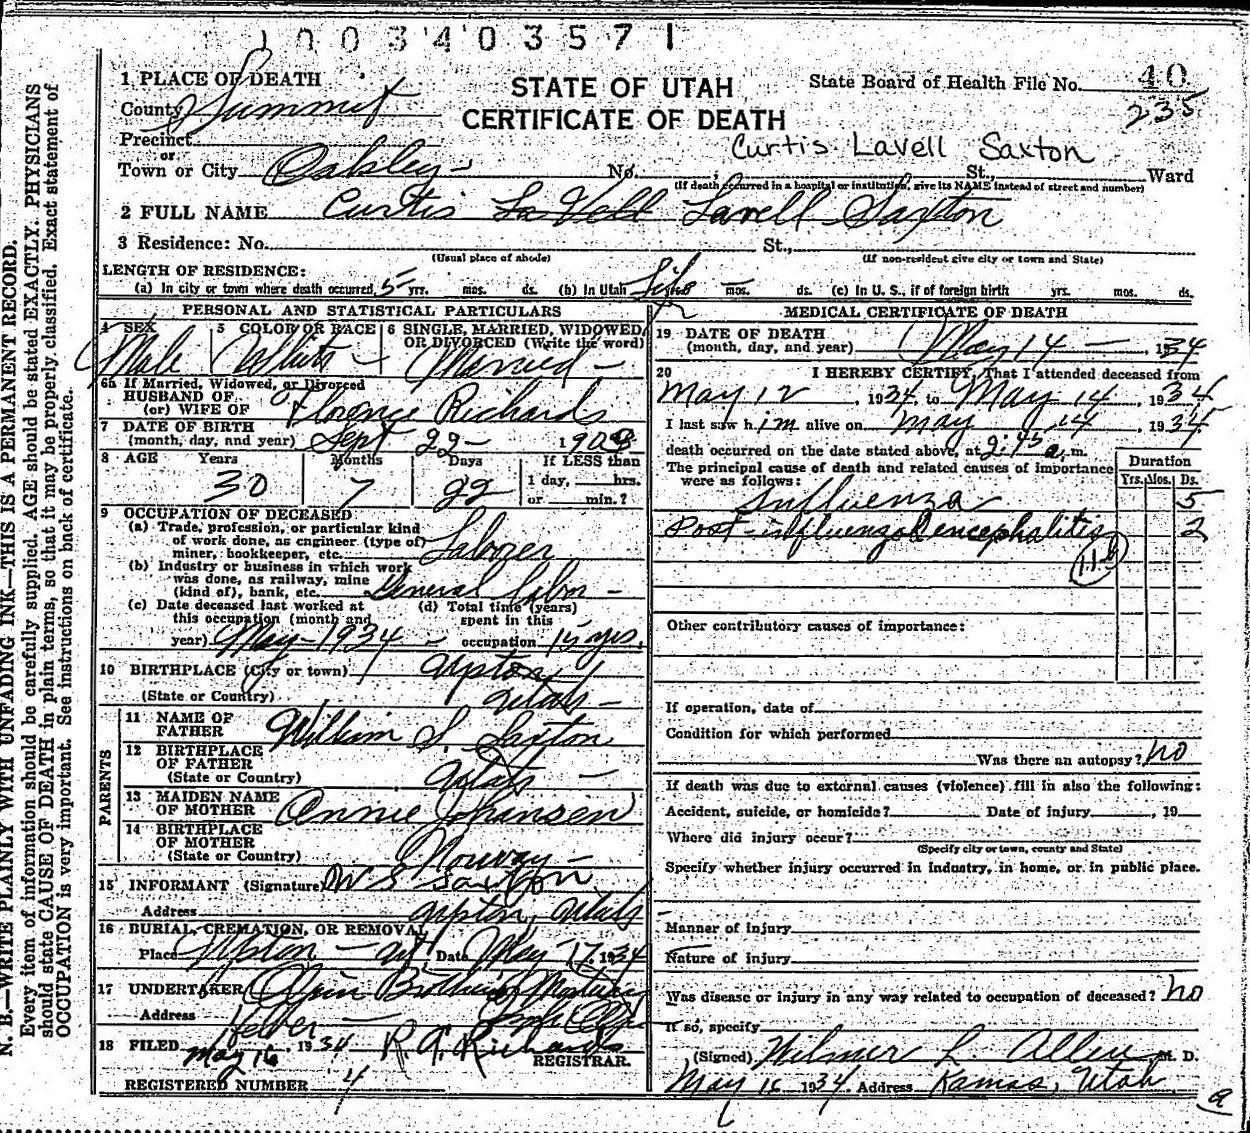 1003403571
STATE OF UTAH
CERTIFICATE OF DEATH
State Board of Health File No. 40
235
1 PLACE OF DEATH
County Summit
Precinct
or
Town or City Oakley No. St., Ward
Curtis Lavell Saxton
(If death occurred in a hospital or institution, give its NAME instead of street and number)
2 FULL NAME Curtis LaVell Lavell Saxton
3 Residence: No. St.,
(Usual place of abode) (If non-resident give city or town and State)
LENGTH OF RESIDENCE:
(a) In city or town where death occurred 5 yrs. mos. ds. (b) In Utah Life mos. ds. (c) In U. S., if of foreign birth yrs. mos. ds.
PERSONAL AND STATISTICAL PARTICULARS
4 SEX 5 COLOR OR RACE 6 SINGLE, MARRIED, WIDOWED,
OR DIVORCED (Write the word)
Male White Married
6a If Married, Widowed, or Divorced
HUSBAND OF
(or) WIFE OF Florence Richards
7 DATE OF BIRTH
(month, day, and year) Sept 22 1903
8 AGE Years Months Days If LESS than
1 day, hrs.
or min.?
30 7 22
9 OCCUPATION OF DECEASED
(a) Trade, profession, or particular kind
of work done, as engineer (type of)
miner, bookkeeper, etc. Laborer
(b) Industry or business in which work
was done, as railway, mine
(kind of), bank, etc. General Labor
(c) Date deceased last worked at
this occupation (month and
year) May 1934
(d) Total time (years)
spent in this
occupation 15 yrs.
10 BIRTHPLACE (City or town) Upton
(State or Country) Utah
PARENTS
11 NAME OF
FATHER William S. Saxton
12 BIRTHPLACE
OF FATHER
(State or Country) Utah
13 MAIDEN NAME
OF MOTHER Annie Johansen
14 BIRTHPLACE
OF MOTHER
(State or Country) Norway
15 INFORMANT (Signature) W S Saxton
Address Upton, Utah
16 BURIAL, CREMATION, OR REMOVAL
Place Upton Ut Date May 17, 1934
17 UNDERTAKER Olpin Brothers Mortuary
Address Heber
18 FILED May 16, 1934 R. A. Richards
REGISTRAR.
REGISTERED NUMBER 4
MEDICAL CERTIFICATE OF DEATH
19 DATE OF DEATH
(month, day, and year) May 14, 1934
20 I HEREBY CERTIFY, That I attended deceased from
May 12, 1934, to May 14, 1934
I last saw him alive on May 14, 1934
death occurred on the date stated above, at 2:45 a.m.
The principal cause of death and related causes of importance
were as follows:
Duration
Yrs. Mos. Ds.
Influenza 5
Post-influenzal encephalitis 2
11b
Other contributory causes of importance:
If operation, date of
Condition for which performed
Was there an autopsy? no
If death was due to external causes (violence) fill in also the following:
Accident, suicide, or homicide? Date of injury, 19
Where did injury occur?
(Specify city or town, county and State)
Specify whether injury occurred in industry, in home, or in public place.
Manner of injury
Nature of injury
Was disease or injury in any way related to occupation of deceased? no
If so, specify
(Signed) Wilmer L. Allen, M. D.
May 16 1934 Address Kamas, Utah
a
N. B.—WRITE PLAINLY WITH UNFADING INK—THIS IS A PERMANENT RECORD.
Every item of information should be carefully supplied. AGE should be stated EXACTLY. PHYSICIANS
should state CAUSE OF DEATH in plain terms, so that it may be properly classified. Exact statement of
OCCUPATION is very important. See instructions on back of certificate.